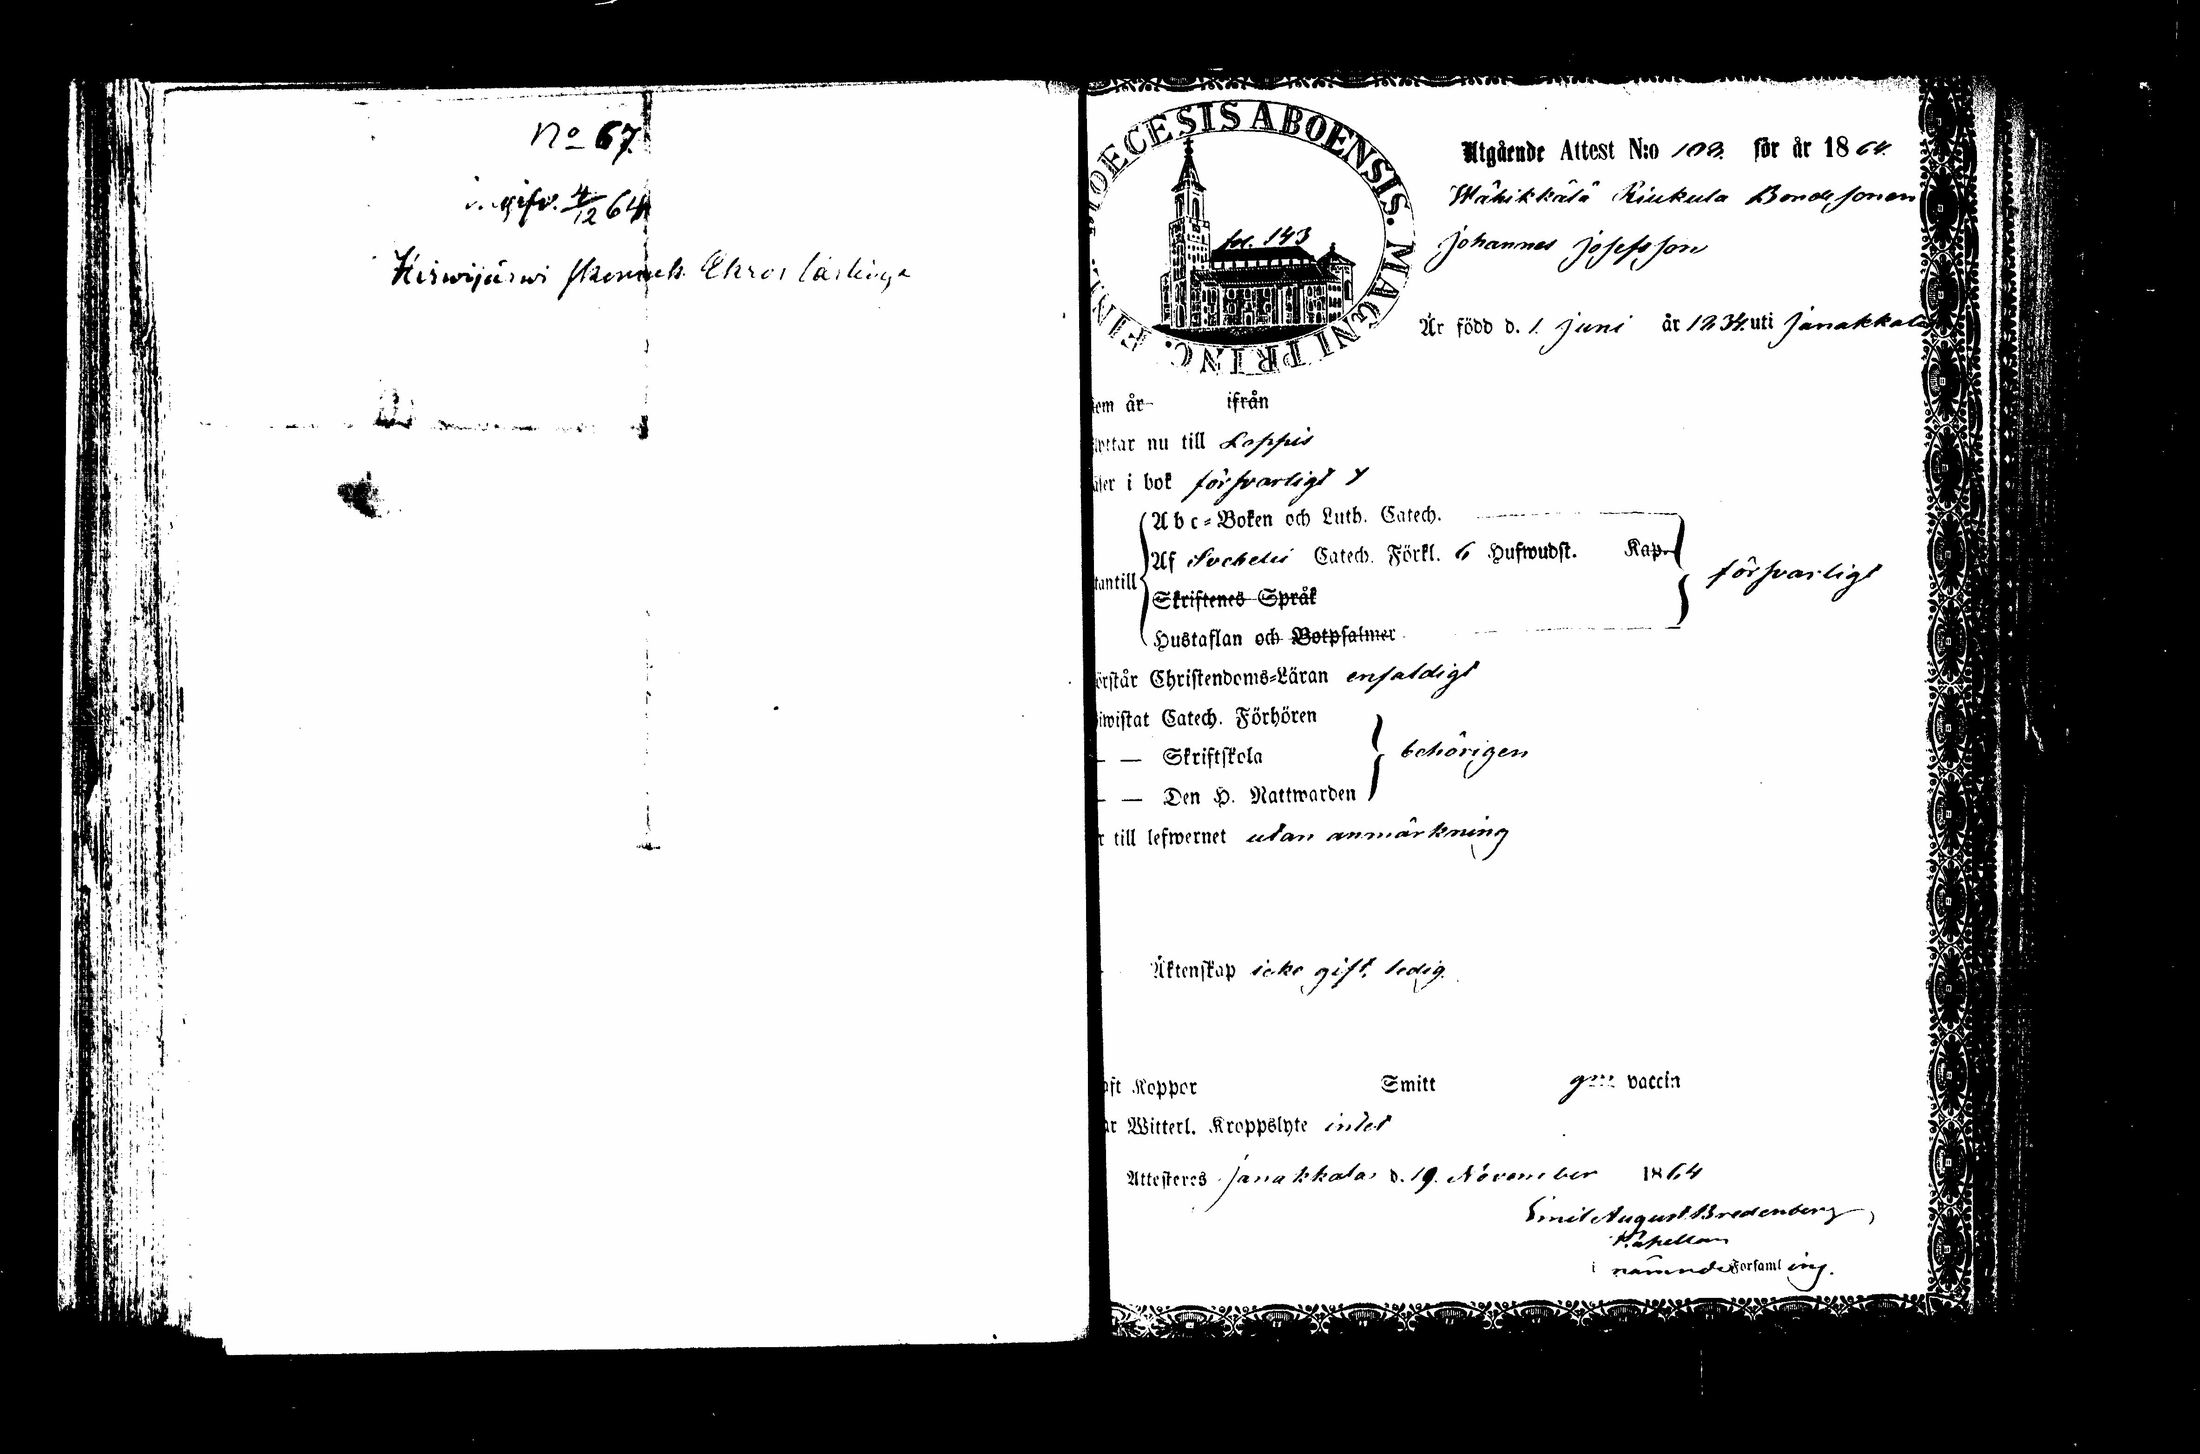 No 67
ingifv. 4/12 64
DIOECESIS ABOENSIS. MAGNI PRINC. FINL.
fol. 143
Utgående Attest N:o 103. för år 1864.
Wähikkälä Riukula Bondesonen
Johannes Josefsson
Är född d. 1. Juni år 1834. uti Janakkala
kom år ifrån
flyttar nu till Loppis
läser i bok försvarligt
Abc-Boken och Luth. Catech.
Af Svebelii Catech. Förkl. 6 Hufwudst. Kap.
utantill försvarligt
Skriftenes Språk
Hustaflan och Botpsalmer
förstår Christendoms-Läran enfaldigt
biwistat Catech. Förhören
— — Skriftskola behörigen
— — Den H. Nattwarden
är till lefwernet utan anmärkning
Äktenskap icke gift, ledig.
haft Koppor Smitt gm vaccin
har Witterl. Kroppslyte intet
Attesteres Janakkala d. 19. November 1864
Emil August Bredenberg
Kapellan
i nämnde Forsamling.